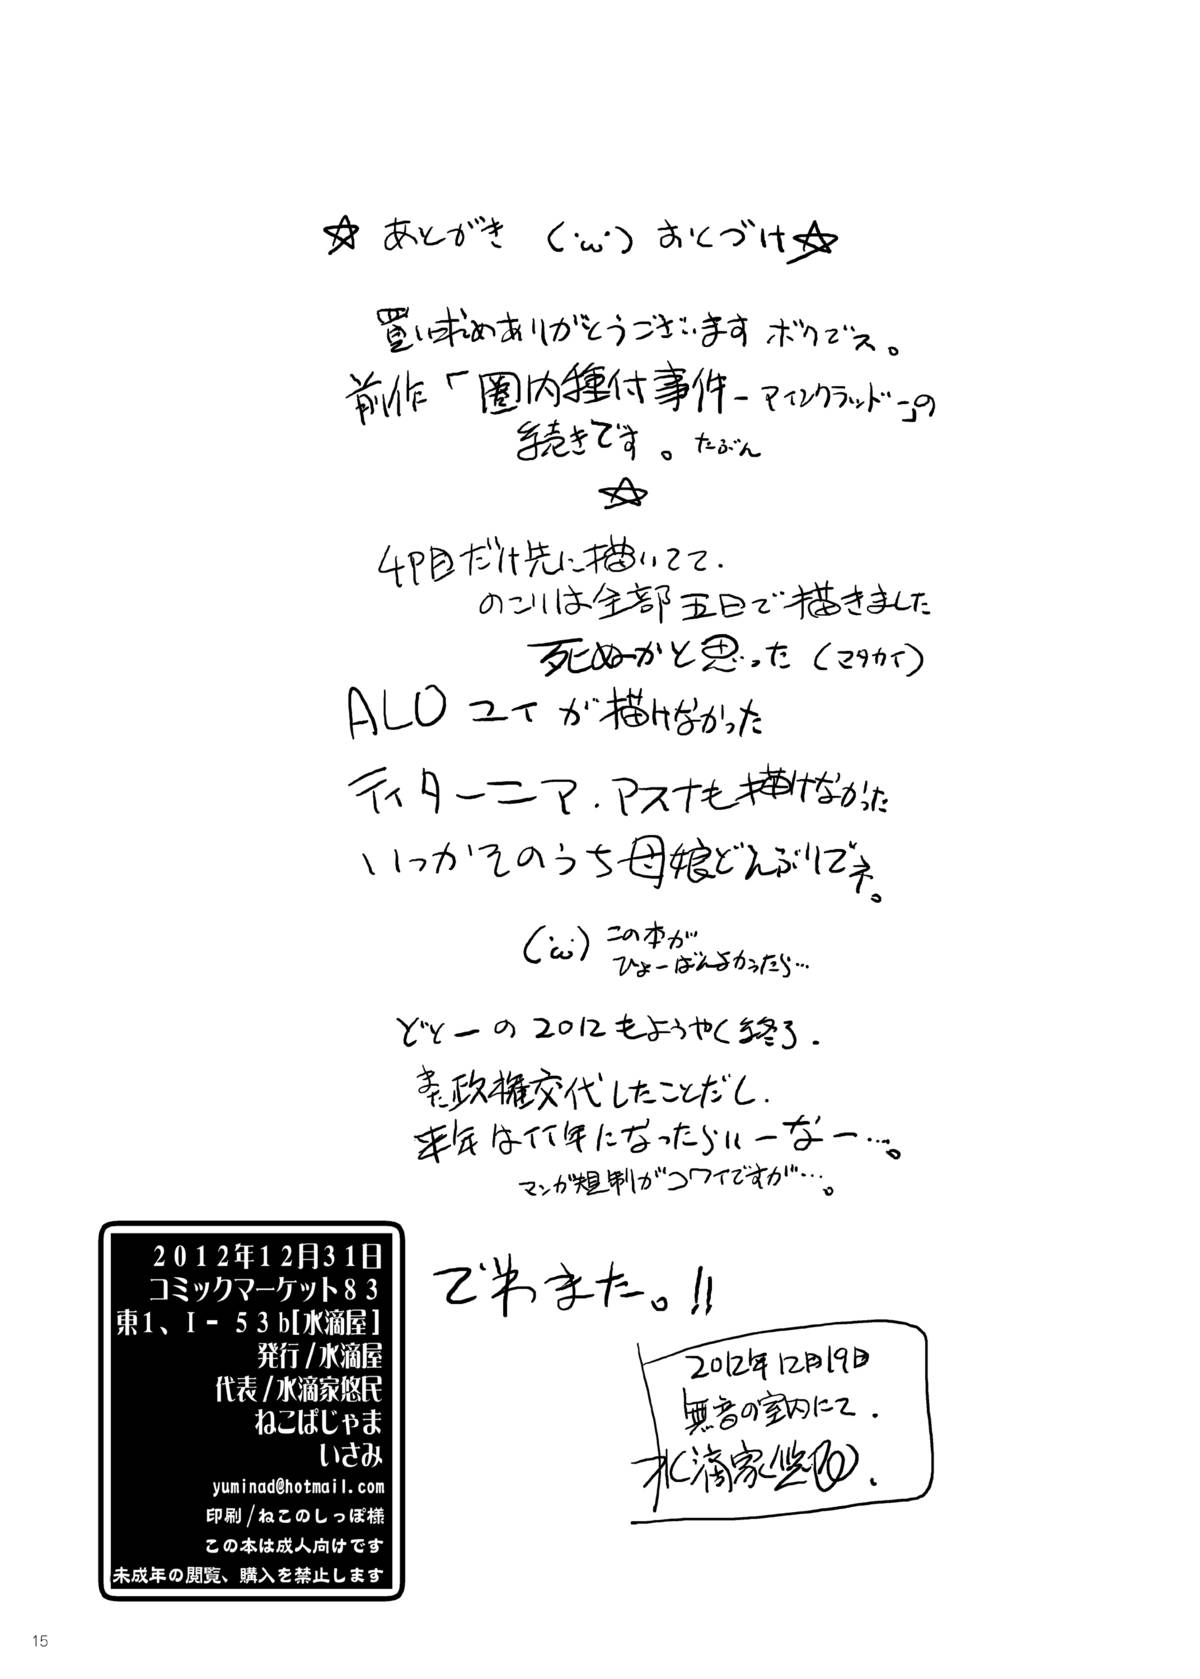 ☆ あとがき (´ω`) おくづけ☆
買い求めありがとうございます ボクでス。
前作「圏内種付事件-アインクラッド-」の
続きです。たぶん
☆
4P目だけ先に描いてて.
のこりは全部五日で描きました
死ぬーかと思った (マタカイ)
ALO ユイが描けなかった
ティターニア.アスナも描けなかった
いっかそのうち母娘どんぶりでネ。
(´ω`) この本が
ひょーばんよかったら…
どとーの2012もようやく終了.
また政権交代したことだし.
来年はイイ年になったらいーなー…。
マンガ規制がコワイですが…。
でわまた。!!
2012年12月19日
無音の室内にて.
水滴家悠民.
2012年12月31日
コミックマーケット83
東1、I-53b[水滴屋]
発行/水滴屋
代表/水滴家悠民
ねこぱじゃま
いさみ
yuminad@hotmail.com
印刷/ねこのしっぽ様
この本は成人向けです
未成年の閲覧、購入を禁止します
15